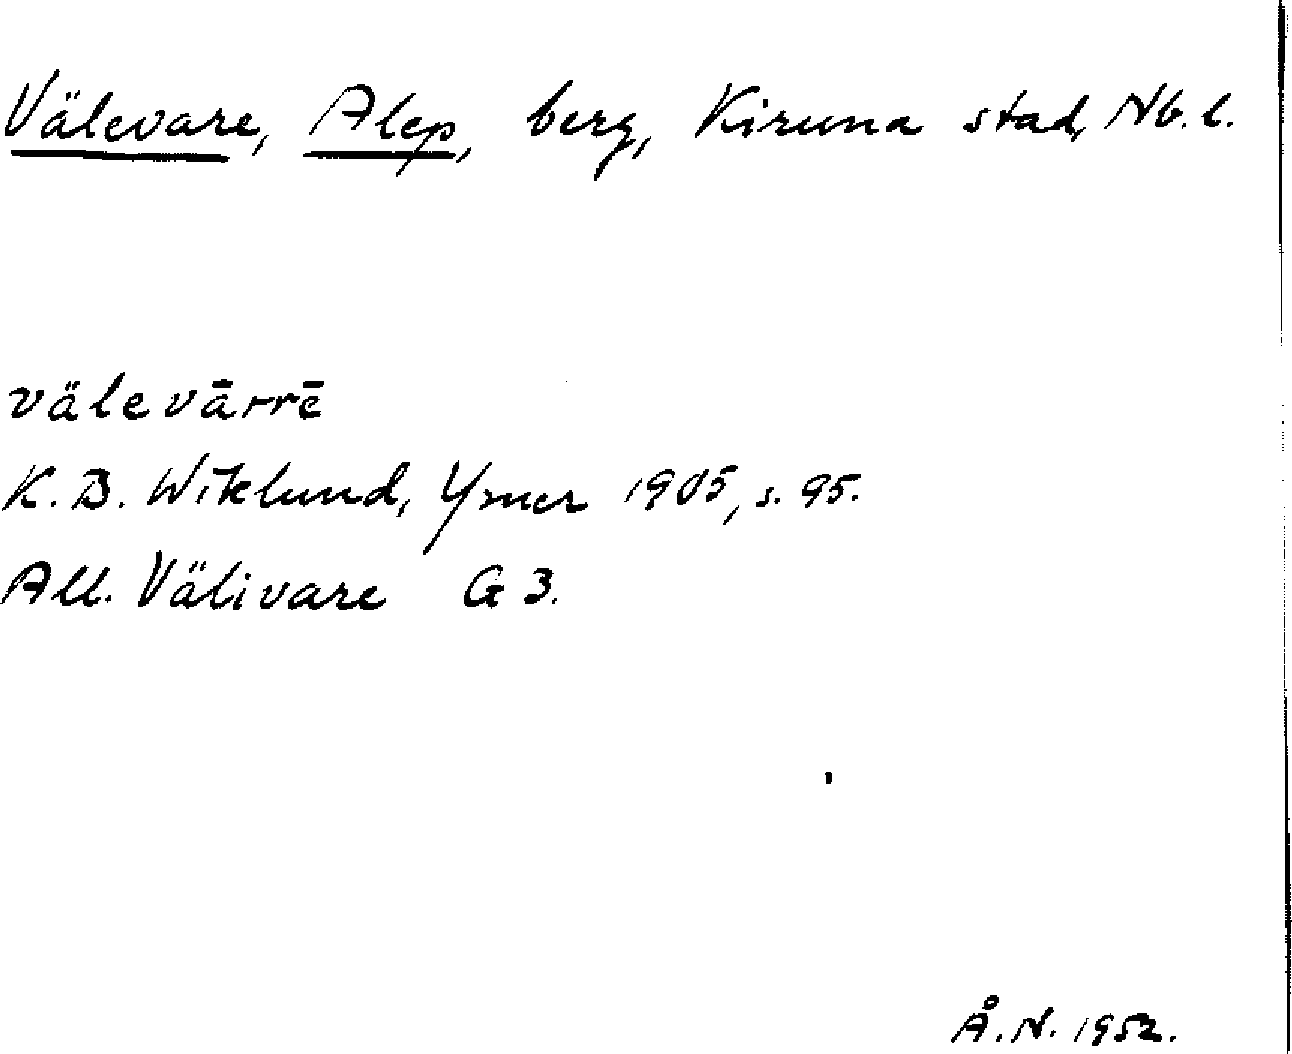 Välevare, Alep, berg, Kiruna stad, Nb. l.
välevārrē
K. B. Wiklund, Ymer 1905, s. 95.
All. Välivare G 3.
Å. N. 1952.